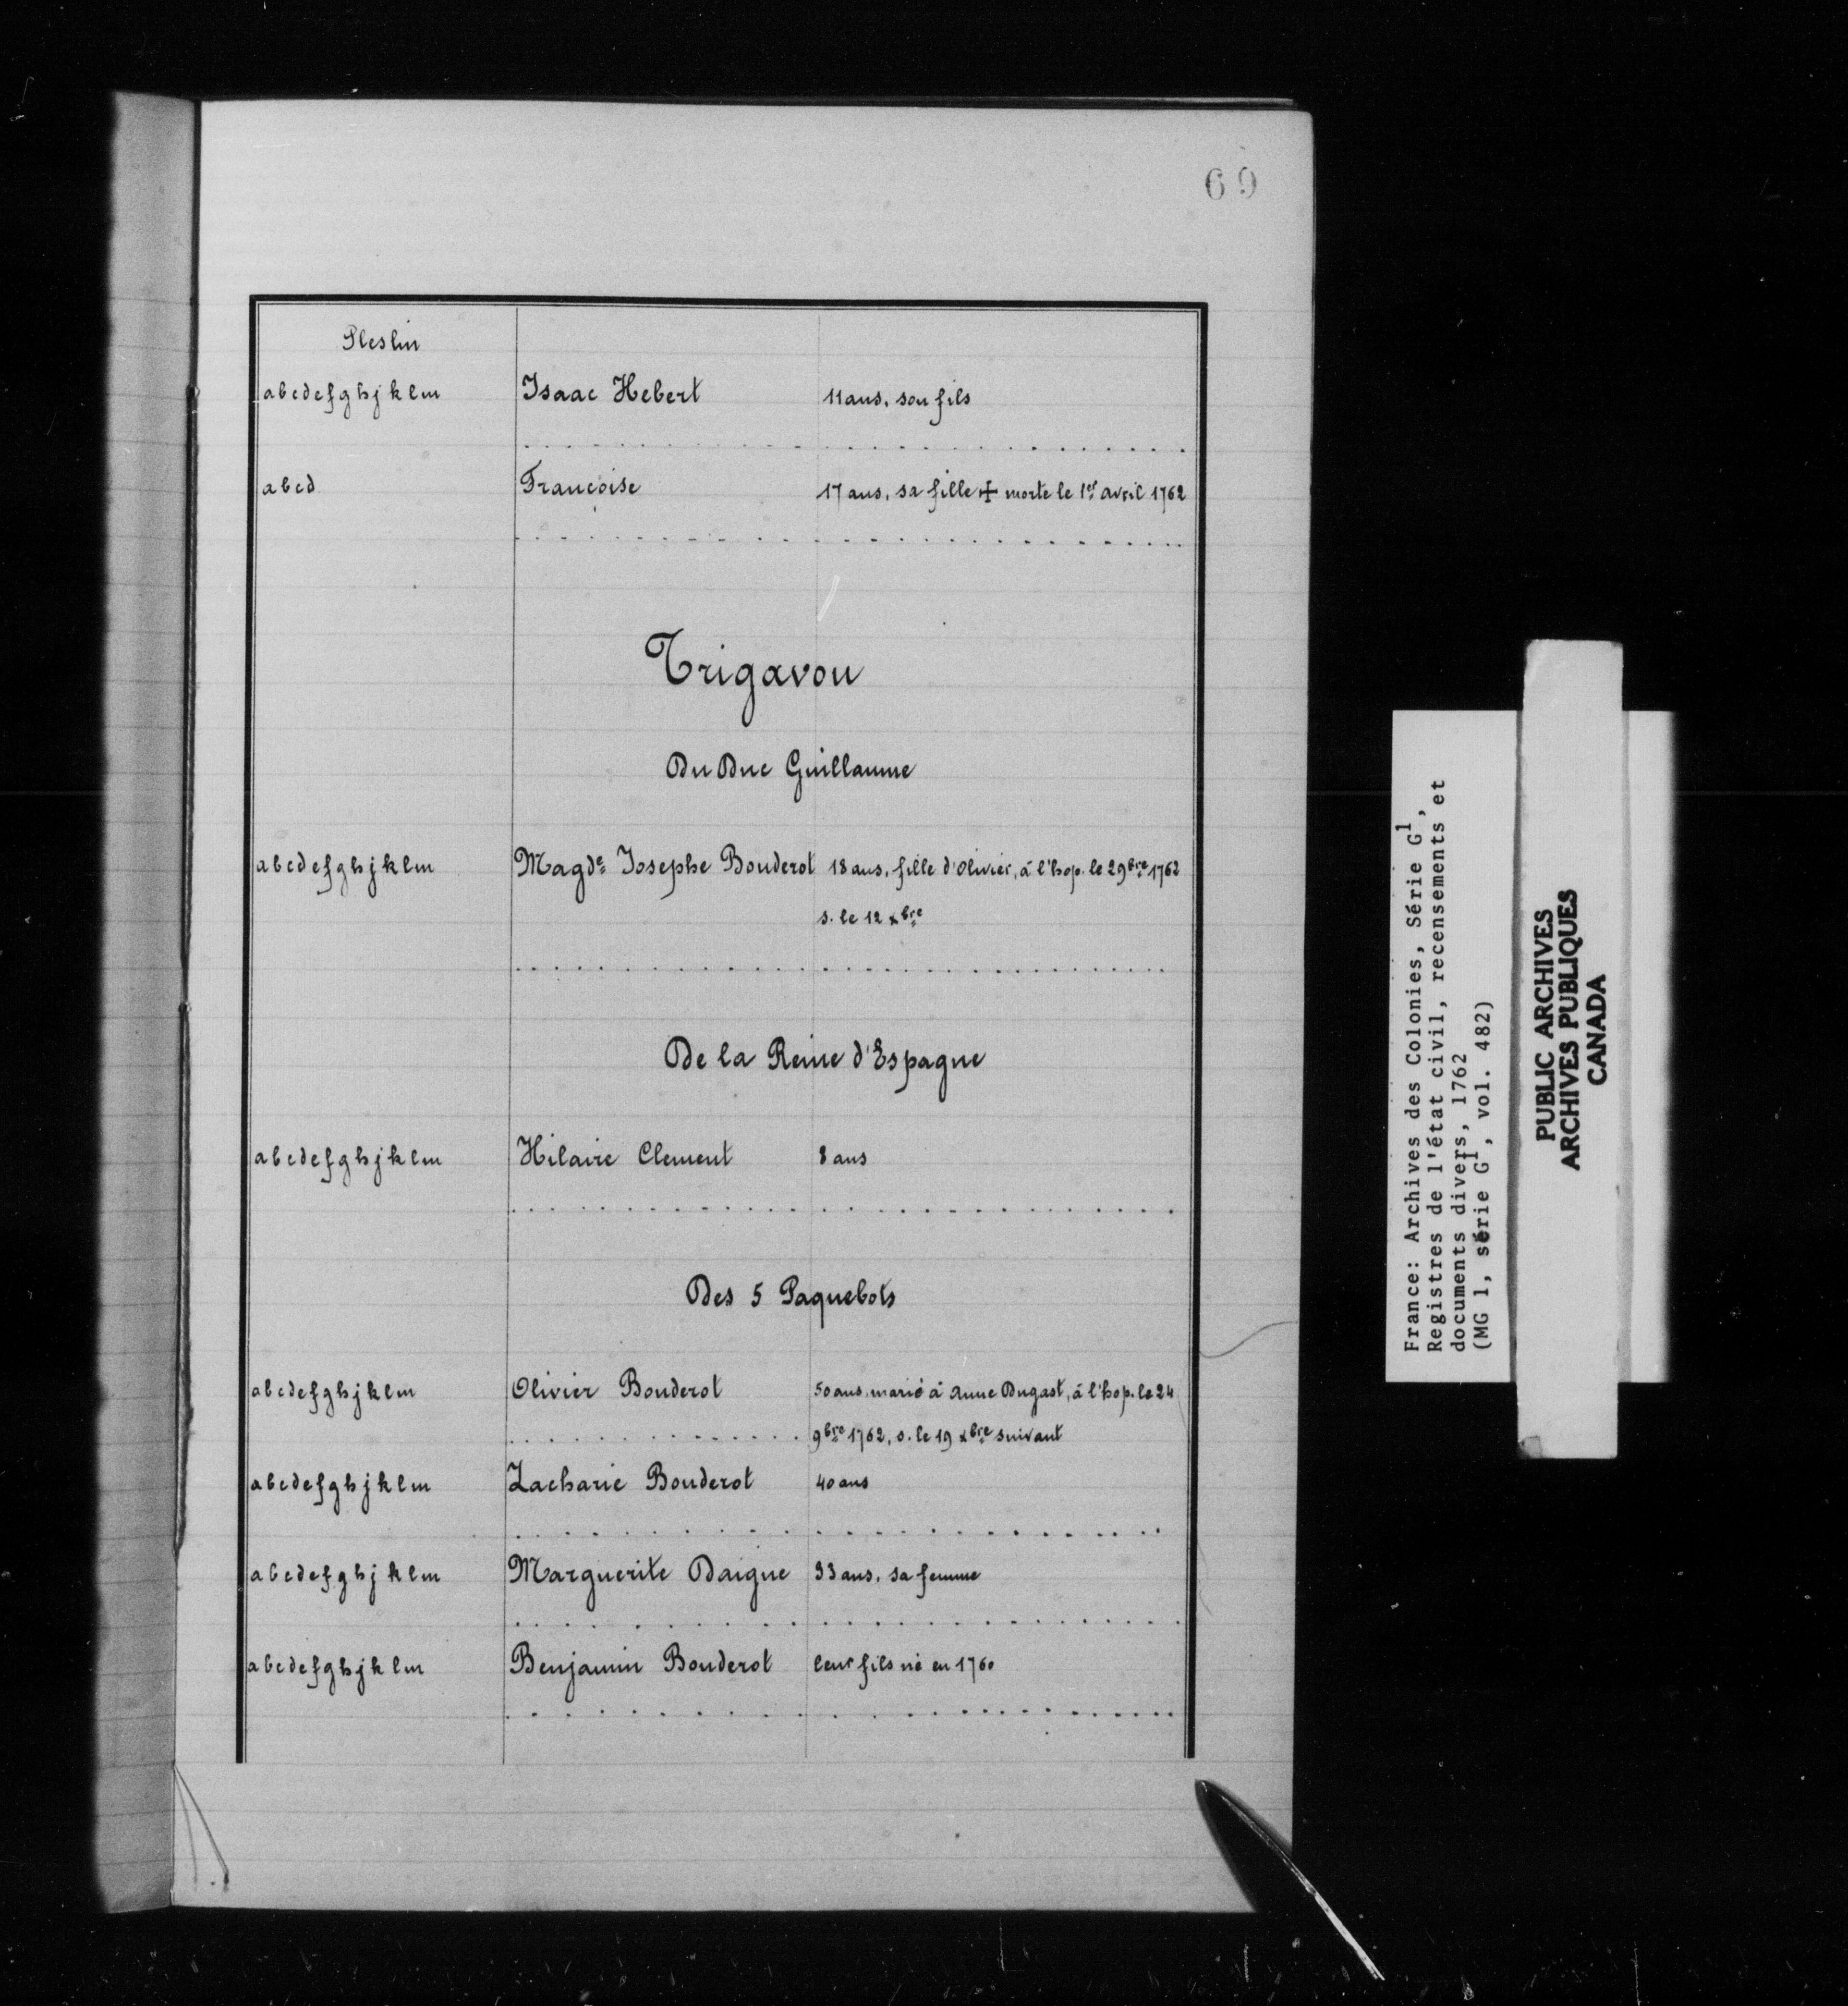 69
Pleslin
abcdefghjklm Isaac Hebert 11 ans, son fils
abcd Françoise 17 ans, sa fille + morte le 1er avril 1762
Trigavou
Du Duc Guillaume
abcdefghjklm Magde Josephe Bouderot 18 ans, fille d'Olivier, à l'hop. le 29bre 1762
s. le 12 xbre
De la Reine d'Espagne
abcdefghjklm Hilaire Clement 8 ans
Des 5 Paquebots
abcdefghjklm Olivier Bouderot 50 ans, marié à Anne Dugast, à l'hop. le 24
9bre 1762, s. le 19 xbre suivant
abcdefghjklm Zacharie Bouderot 40 ans
abcdefghjklm Marguerite Daigue 33 ans, sa femme
abcdefghjklm Benjamin Bouderot leur fils né en 1760
France: Archives des Colonies, Série G1,
Registres de l'état civil, recensements et
documents divers, 1762
(MG 1, série G1, vol. 482)
PUBLIC ARCHIVES
ARCHIVES PUBLIQUES
CANADA